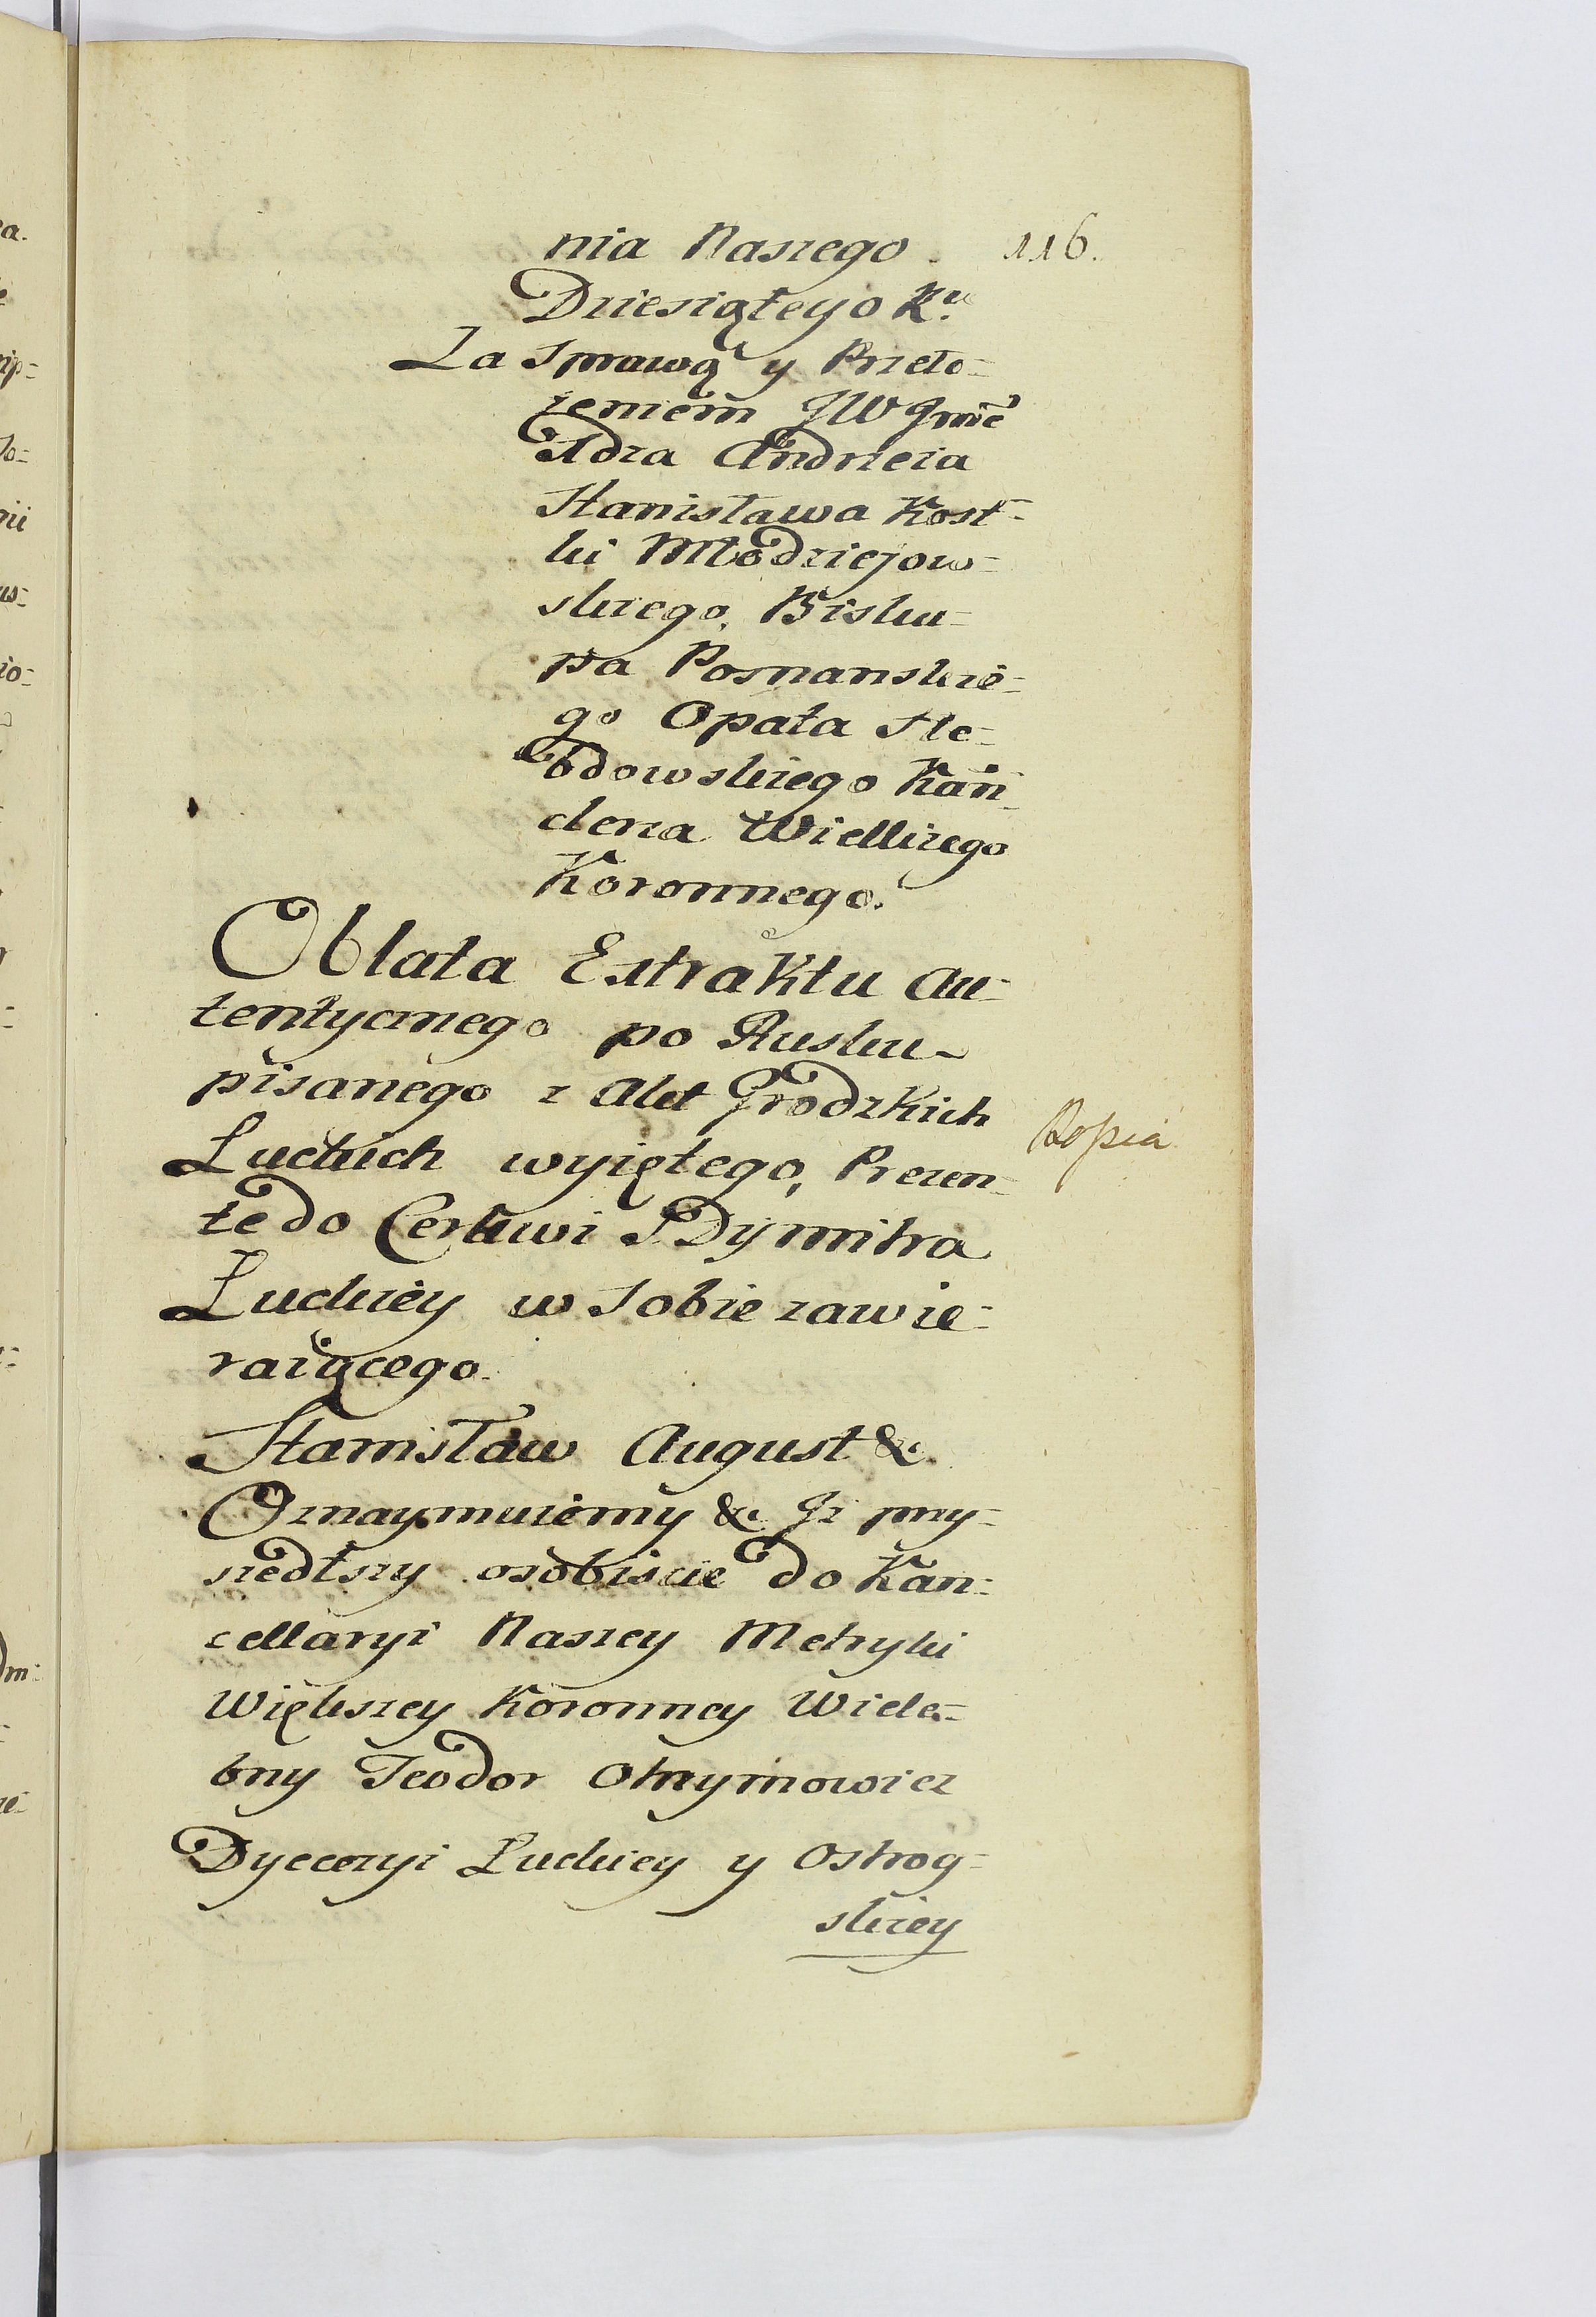 nia Naszego. 116.
Dziesiątego Ru.
Za Sprawą y Przeło=
żeniem JW Jmć
Xdza Andrzeia
Stanisława Kost=
ki Młodziejow=
skiego, Bisku=
pa Poznanskie=
go Opata He=
bdowskiego Kan=
clerza Wielkiego
Koronnego.
Oblata Extraktu Au=
tentycznego po Rusku
pisanego z Akt Grodzkich
Łuckich wyiętego, Prezen=
tę do Cerkwi S Dymitra
Łuckiey w Sobie zawie=
raiącego.
Kopia
Stanisław August &c.
Oznaymuiemy &c Iż przy=
szedłszy osobiscie do Kan=
cellaryi Naszey Metryki
Większey Koronney Wiele=
bny Teodor Otrzymowicz
Dyecezyi Łuckiey y Ostrog=
skiey